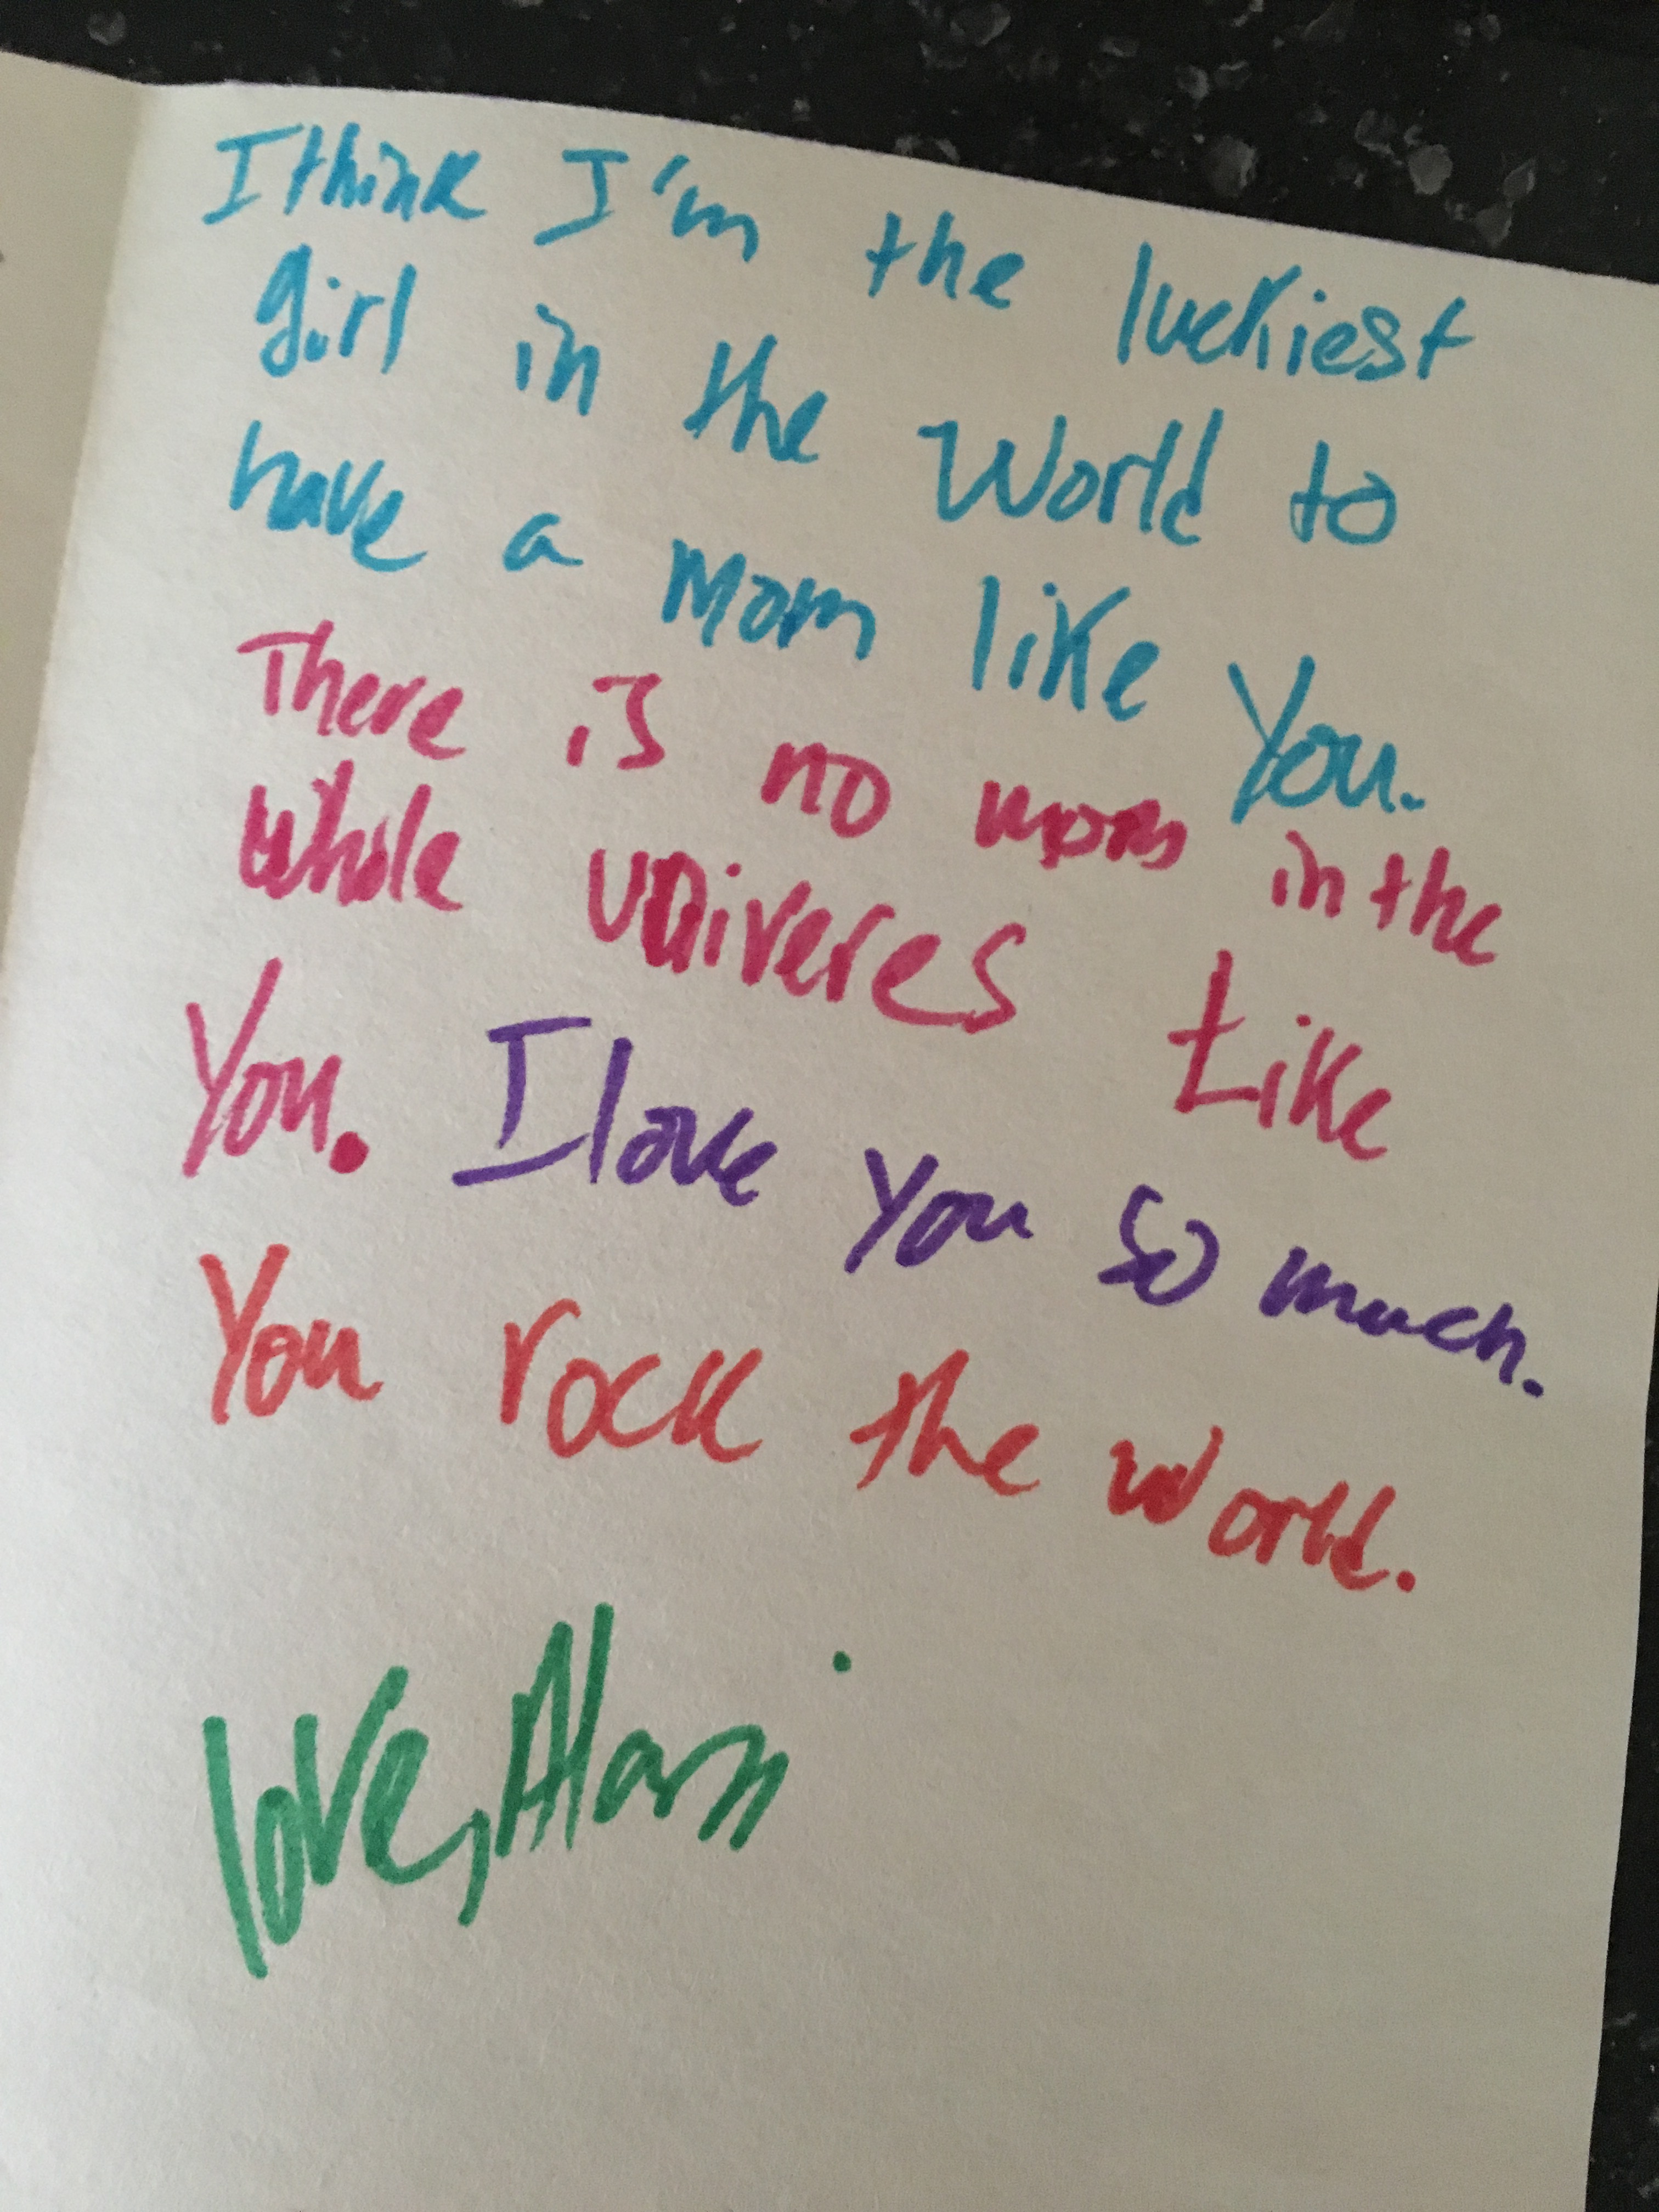 I think I'm the luckiest
girl in the World to
have a Mom like You.
There is no mom in the
Whole univeres Like
You. I love You so much.
You rock the world.
love,